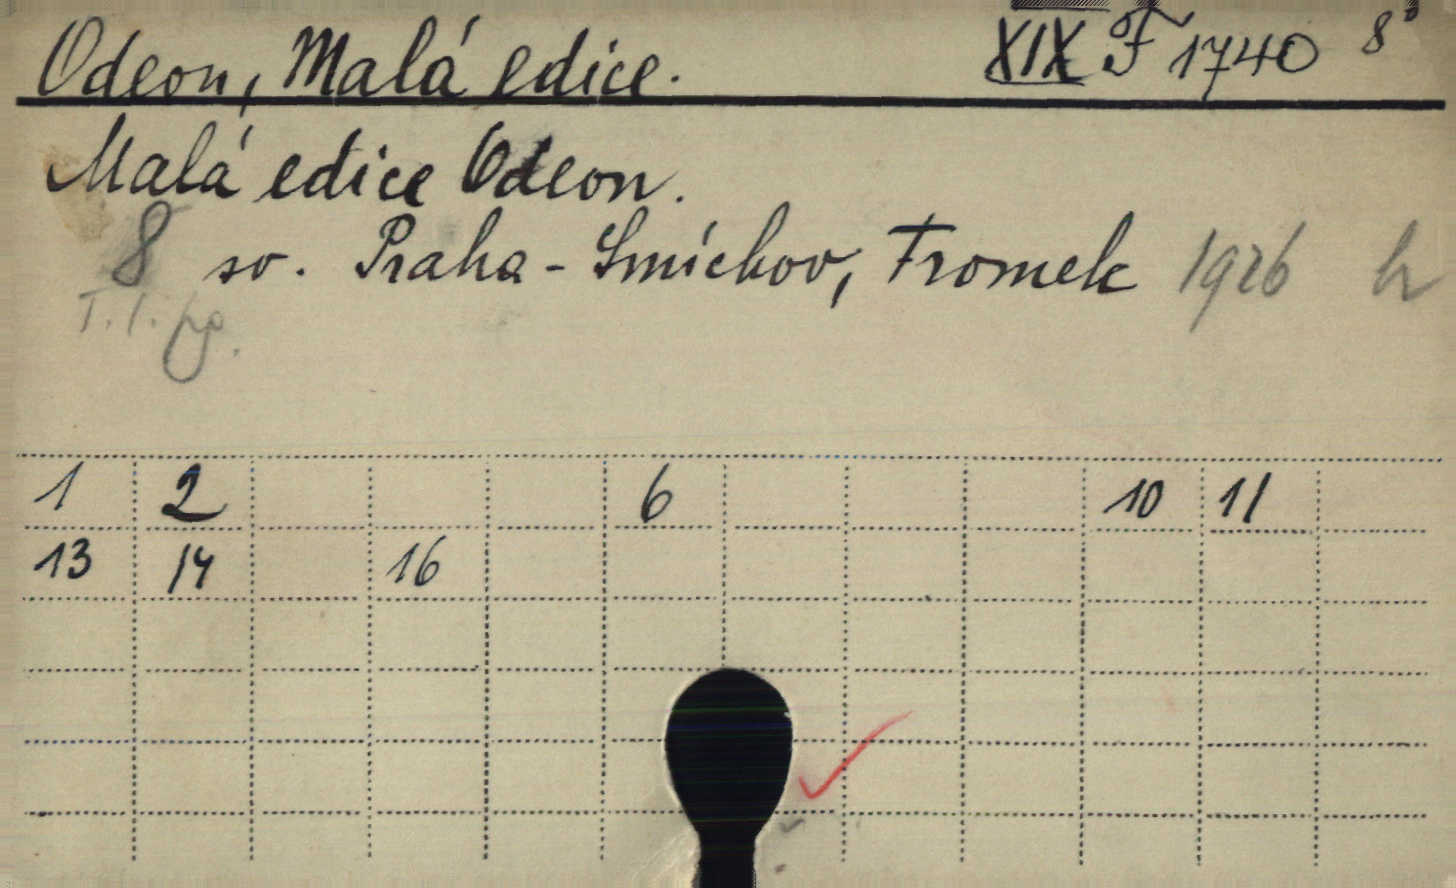 Odeon, Malá edice. XIX F 1740 8°
Malá edice Odeon.
8 sv. Praha-Smíchov, Fromek 1926
T. l. pg.
1 2 6 10 11
13 14 16